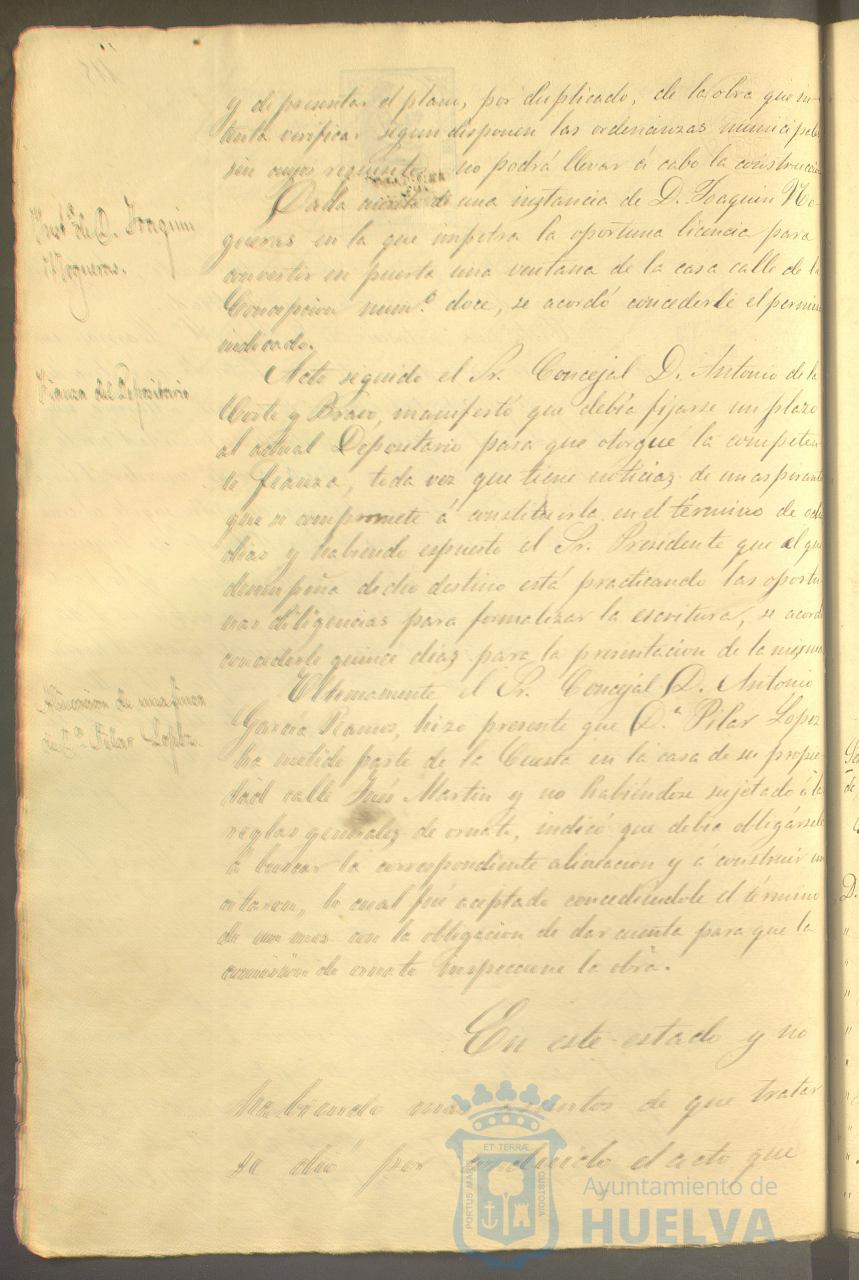 y de presentar el plano, por duplicado, de la obra que in-
tenta verificar segun disponen las ordenanzas municipales
sin cuyos requisitos no podrá llevar á cabo la construccion
Instª de D. Joaquin
Nogueras.
Dada cuenta de una instancia de D. Joaquin No-
gueras en la que impetra la oportuna licencia para
convertir en puerta una ventana de la casa calle de la
Concepcion num.º doce, se acordó concederle el permiso
indicado.
Fianza del Depositario
Acto seguido el Sr. Concejal D. Antonio de la
Corte y Bravo, manifestó que debia fijarse un plazo
al actual Depositario para que otorgue la competen-
te fianza, toda vez que tiene noticias de un aspirante
que se compromete á constituirla en el término de ocho
dias y habiendo espuesto el Sr. Presidente que el que
desempeña dicho destino está practicando las oportu-
nas diligencias para formalizar la escritura, se acordó
concederle quince dias para la presentacion de la misma
Alineacion de una finca
de Dª Pilar Lopez.
Ultimamente el Sr. Concejal D. Antonio
Garcia Ramos, hizo presente que D.ª Pilar Lopez
ha metido parte de la Cuesta en la casa de su propie-
dad calle Inés Martin y no habiéndose sujetado á las
reglas generales de ornato, indicó que debia obligársele
a buscar la correspondiente alineacion y á construir un
citaron, lo cual fué aceptado concediéndole el término
de un mes con la obligacion de dar cuenta para que la
comision de ornato inspeccione la obra.
En este estado y no
habiendo mas asuntos de que tratar
se dió por concluido el acto que
ET TERRÆ
PORTUS MARIS
CUSTODIA
Ayuntamiento de
HUELVA